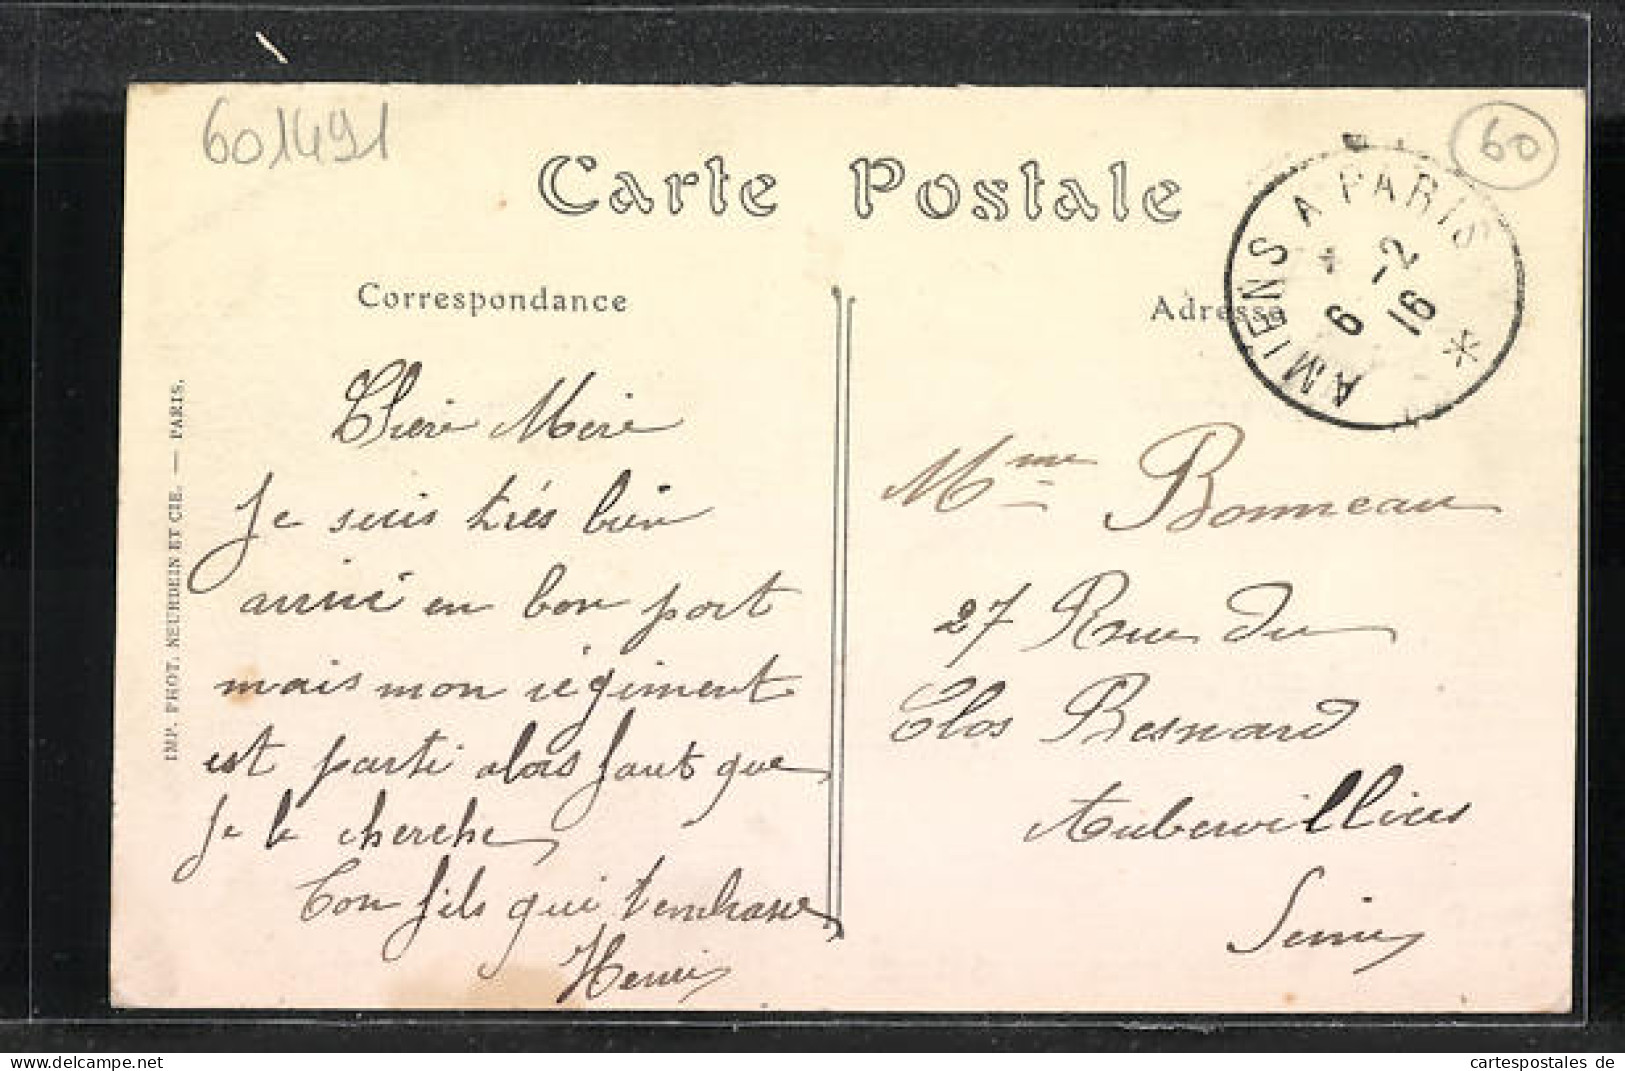 601491
60
Carte Postale
AMIENS A PARIS
6 -2
16
Correspondance
Adresse
Chère Mère
Je suis très bien
arrivé en bon port
mais mon régiment
est parti alors faut que
je le cherche
Ton fils qui t'embrasse
Henri
Mme Bonneau
27 Rue du
Clos Besnard
Aubervilliers
Seine
IMP. PHOT. NEURDEIN ET CIE. — PARIS.
www.delcampe.net
cartespostales de